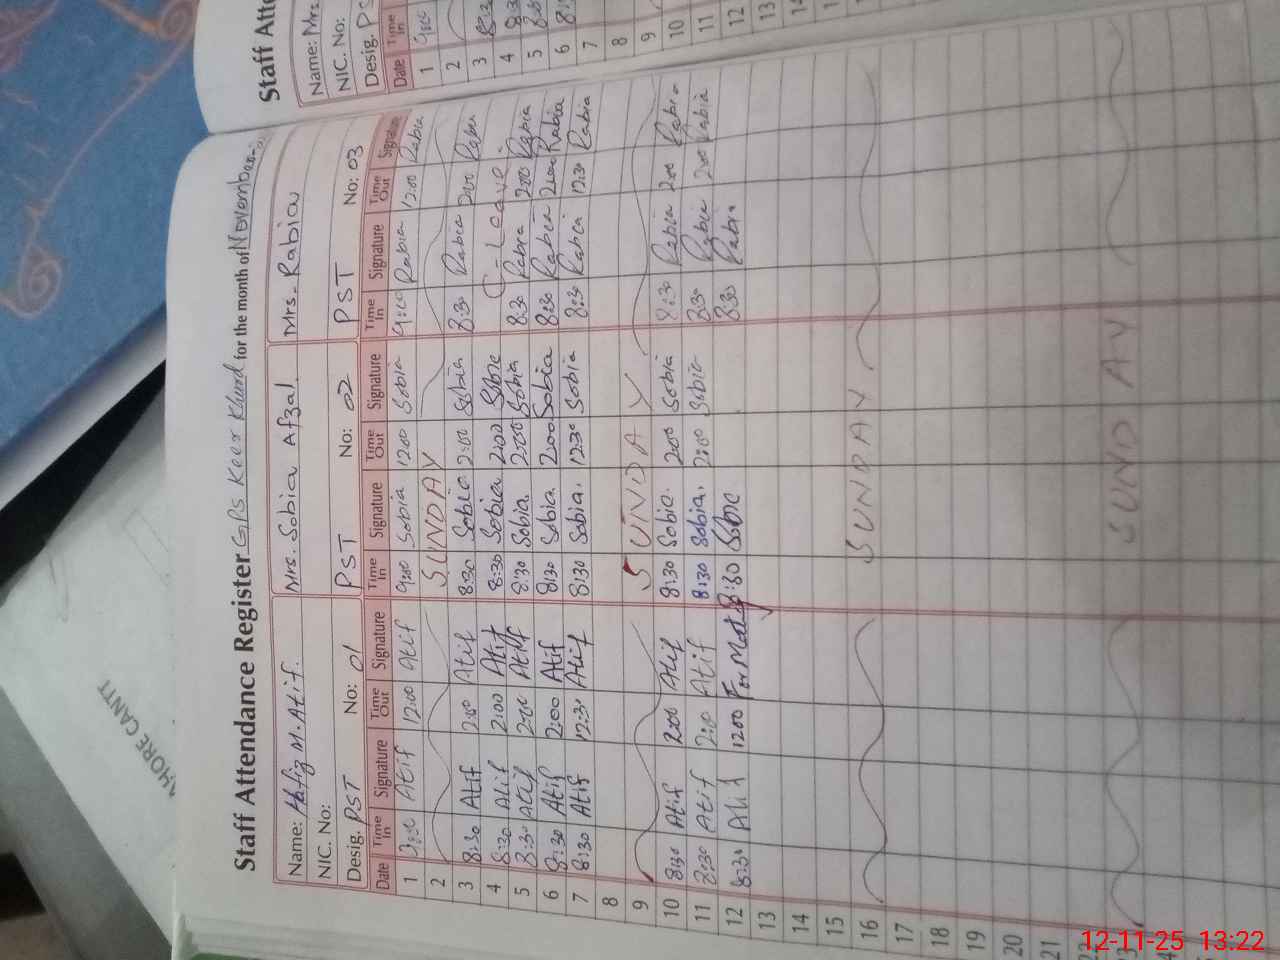 Staff Attendance Register GPS Keer Khurd for the month of November
Name: Hafiz M. Atif. Mrs. Sobia Afzal Mrs. Rabia
NIC. No:
Desig. PST No: 01 PST No: 02 PST No: 03
Date Time In Signature Time Out Signature Time In Signature Time Out Signature Time In Signature Time Out Signature
1 9:00 Atif 12:00 Atif 9:00 Sobia 12:00 Sobia 9:00 Rabia 12:00 Rabia
2 SUNDAY
3 8:30 Atif 2:00 Atif 8:30 Sobia 2:00 Sobia 8:30 Rabia 2:00 Rabia
4 8:30 Atif 2:00 Atif 8:30 Sobia 2:00 Sobia C-Leave
5 8:30 Atif 2:00 Atif 8:30 Sobia 2:00 Sobia 8:30 Rabia 2:00 Rabia
6 8:30 Atif 2:00 Atif 8:30 Sobia 2:00 Sobia 8:30 Rabia 2:00 Rabia
7 8:30 Atif 12:30 Atif 8:30 Sobia. 12:30 Sobia 8:30 Rabia 12:30 Rabia
8
9 SUNDAY
10 8:30 Atif 2:00 Atif 8:30 Sobia. 2:00 Sobia 8:30 Rabia 2:00 Rabia
11 8:30 Atif 2:00 Atif 8:30 Sobia. 2:00 Sobia 8:30 Rabia 2:00 Rabia
12 8:30 Atif 1200 For Meeting 8:30 Sobia 8:30 Rabia
13
14
15
16 SUNDAY
17
18
19
20
21
22
23 SUNDAY
Staff Atte
Name: Mrs.
NIC. No:
Desig. PS
Date Time In
1 9:00
2
3 8:30
4 8:3
5 8:3
6 8:
7
8
9
10
11
12
13
AHORE CANTT
12-11-25 13:22